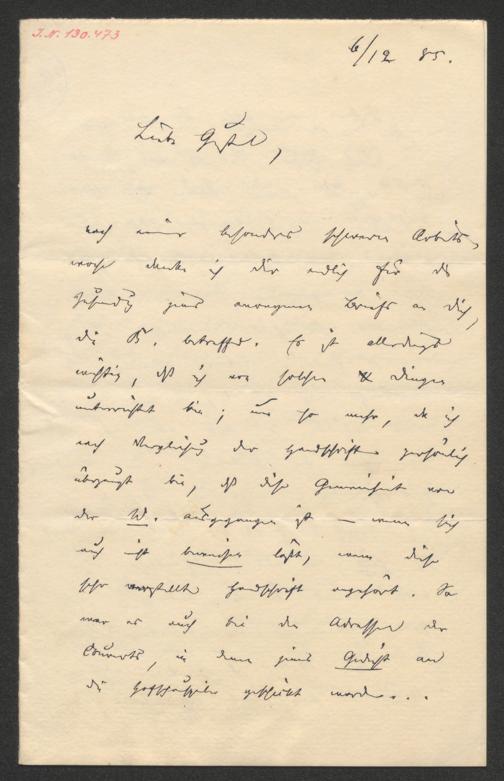 J.N. 130.473
6/12 85.
Liebe Gustl,
nach einer besonders schweren Arbeits-
woche danke ich dir endlich für die
Zusendung jenes anonymen Briefs an dich,
die B. betreffend. Es ist allerdings
wichtig, daß ich von solchen Dingen
unterrichtet bin; um so mehr, da ich
nach Vergleichung der Handschriften persönlich
überzeugt bin, daß diese Gemeinheit von
der W. ausgegangen ist – wenn sich
auch nicht beweisen läßt, wem diese
sehr verstellte Handschrift angehört. So
war es auch bei den Adressen der
Couverts, in denen jenes Gedicht an
die Hofschauspieler geschickt wurde...